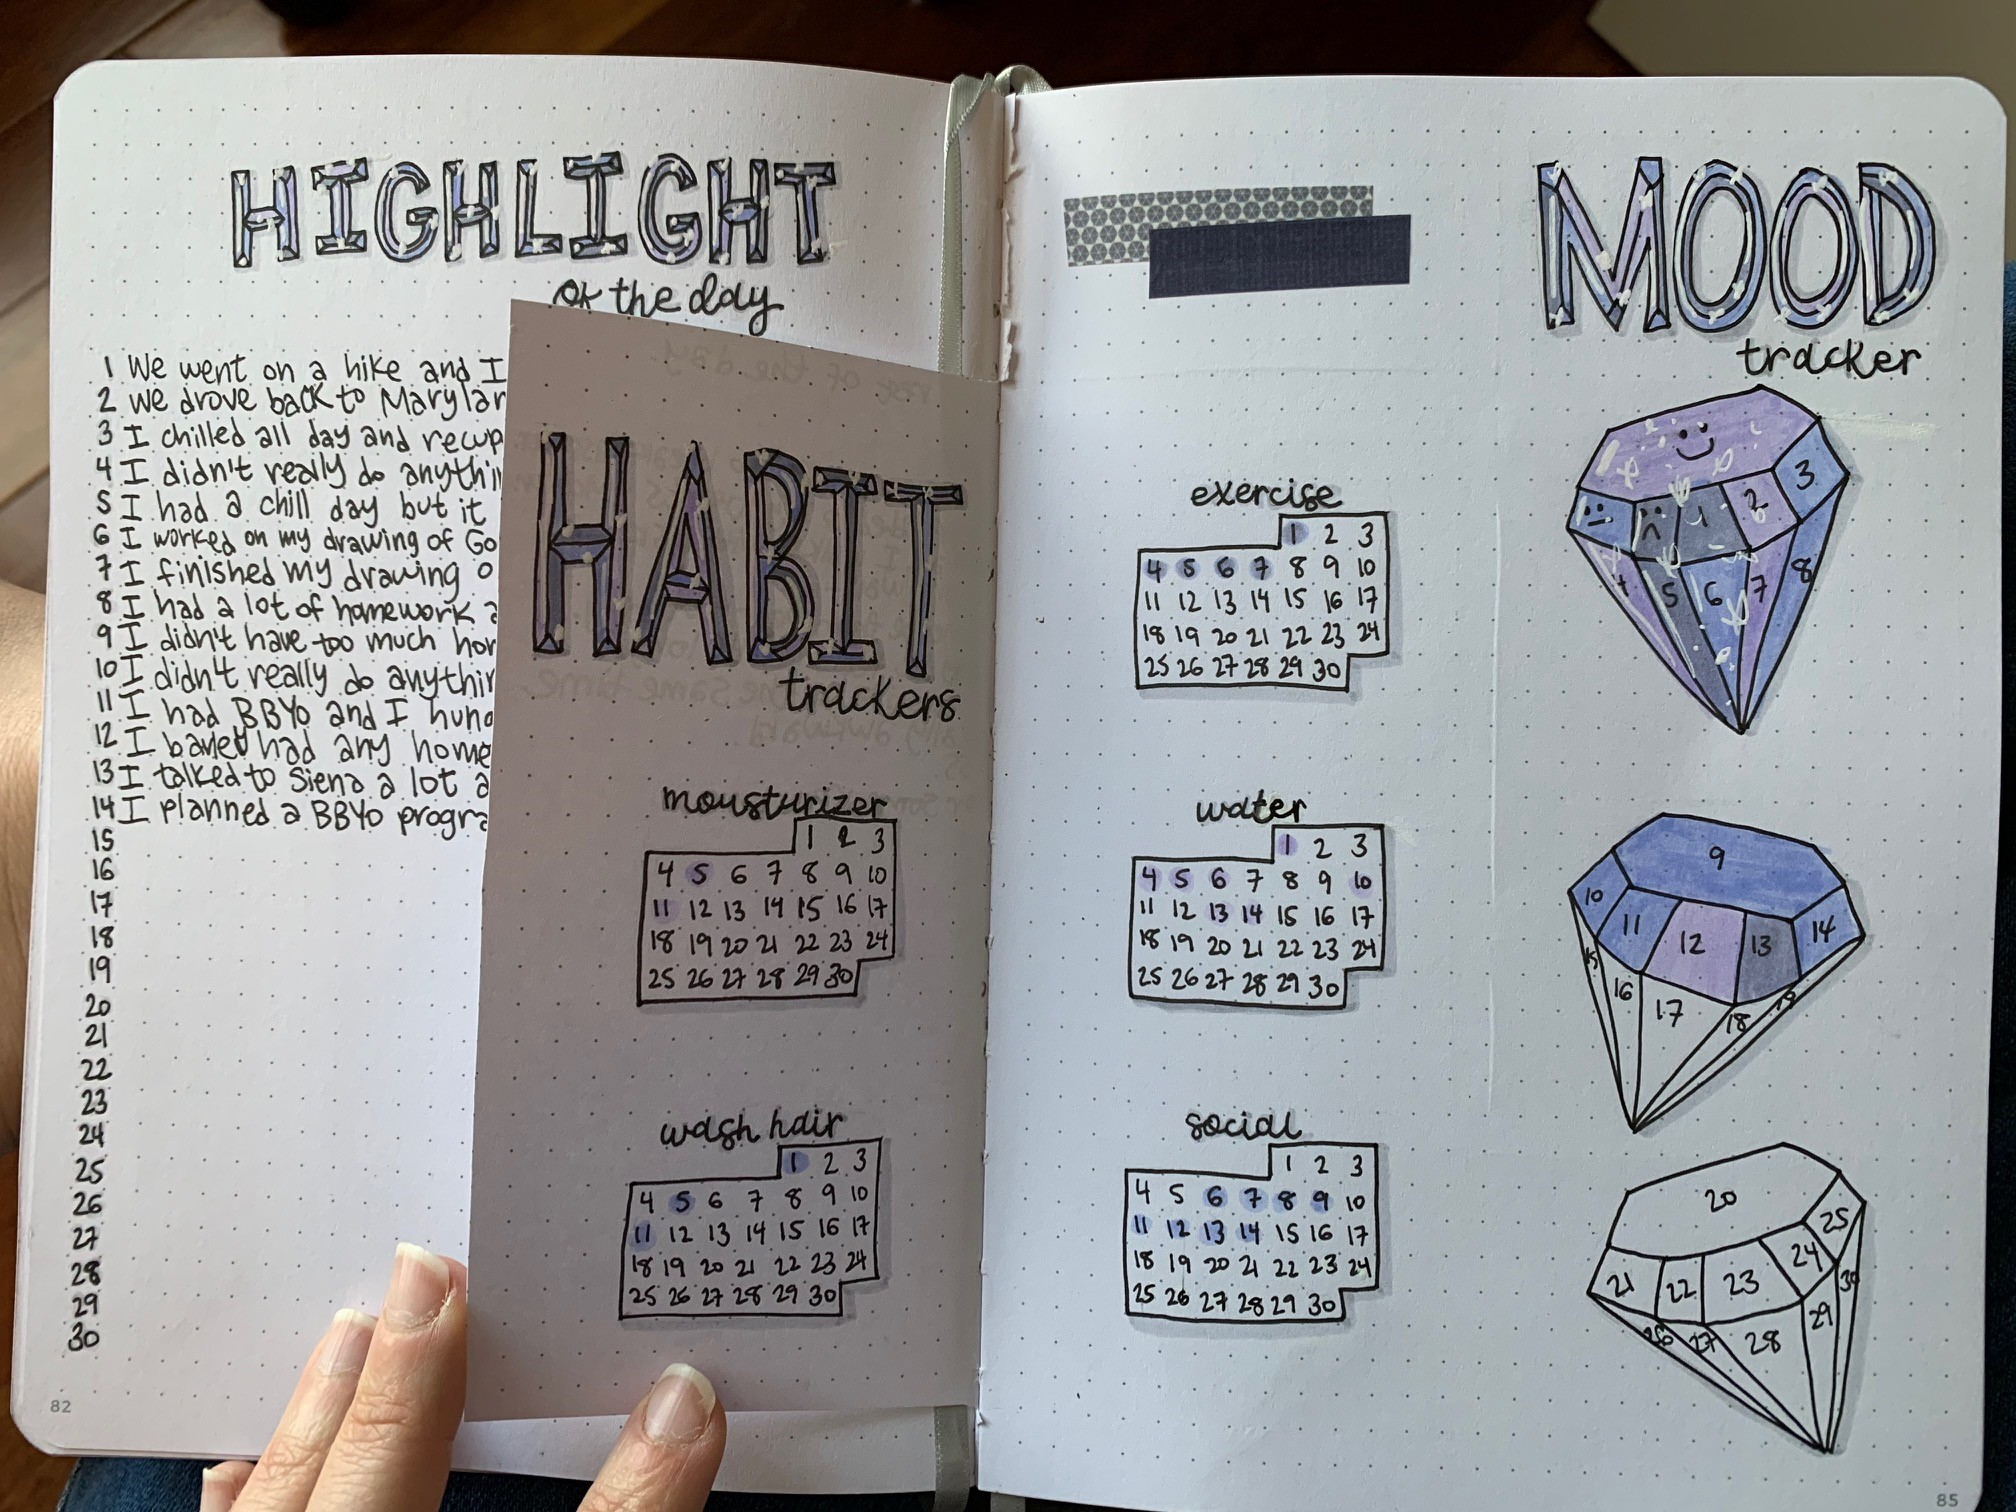 HIGHLIGHT
of the day
1 We went on a hike and I
2 we drove back to Marylan
3 I chilled all day and recup
4 I didn't really do anythin
5 I had a chill day but it
6 I worked on my drawing of Go
7 I finished my drawing o
8 I had a lot of homework a
9 I didn't have too much hor
10 I didn't really do anythin
11 I had BBYO and I hung
12 I had any home
13 I talked to Siena a lot a
14 I planned a BBYO progra
15
16
17
18
19
20
21
22
23
24
25
26
27
28
29
30
82
HABIT
trackers
mousturizer
1 2 3
4 5 6 7 8 9 10
11 12 13 14 15 16 17
18 19 20 21 22 23 24
25 26 27 28 29 30
wash hair
1 2 3
4 5 6 7 8 9 10
11 12 13 14 15 16 17
18 19 20 21 22 23 24
25 26 27 28 29 30
exercise
1 2 3
4 5 6 7 8 9 10
11 12 13 14 15 16 17
18 19 20 21 22 23 24
25 26 27 28 29 30
water
1 2 3
4 5 6 7 8 9 10
11 12 13 14 15 16 17
18 19 20 21 22 23 24
25 26 27 28 29 30
social
1 2 3
4 5 6 7 8 9 10
11 12 13 14 15 16 17
18 19 20 21 22 23 24
25 26 27 28 29 30
MOOD
tracker
1 2 3
4 5 6 7 8
9
10 11 12 13 14
15 16 17 18 19
20
21 22 23 24 25
26 27 28 29 30
85